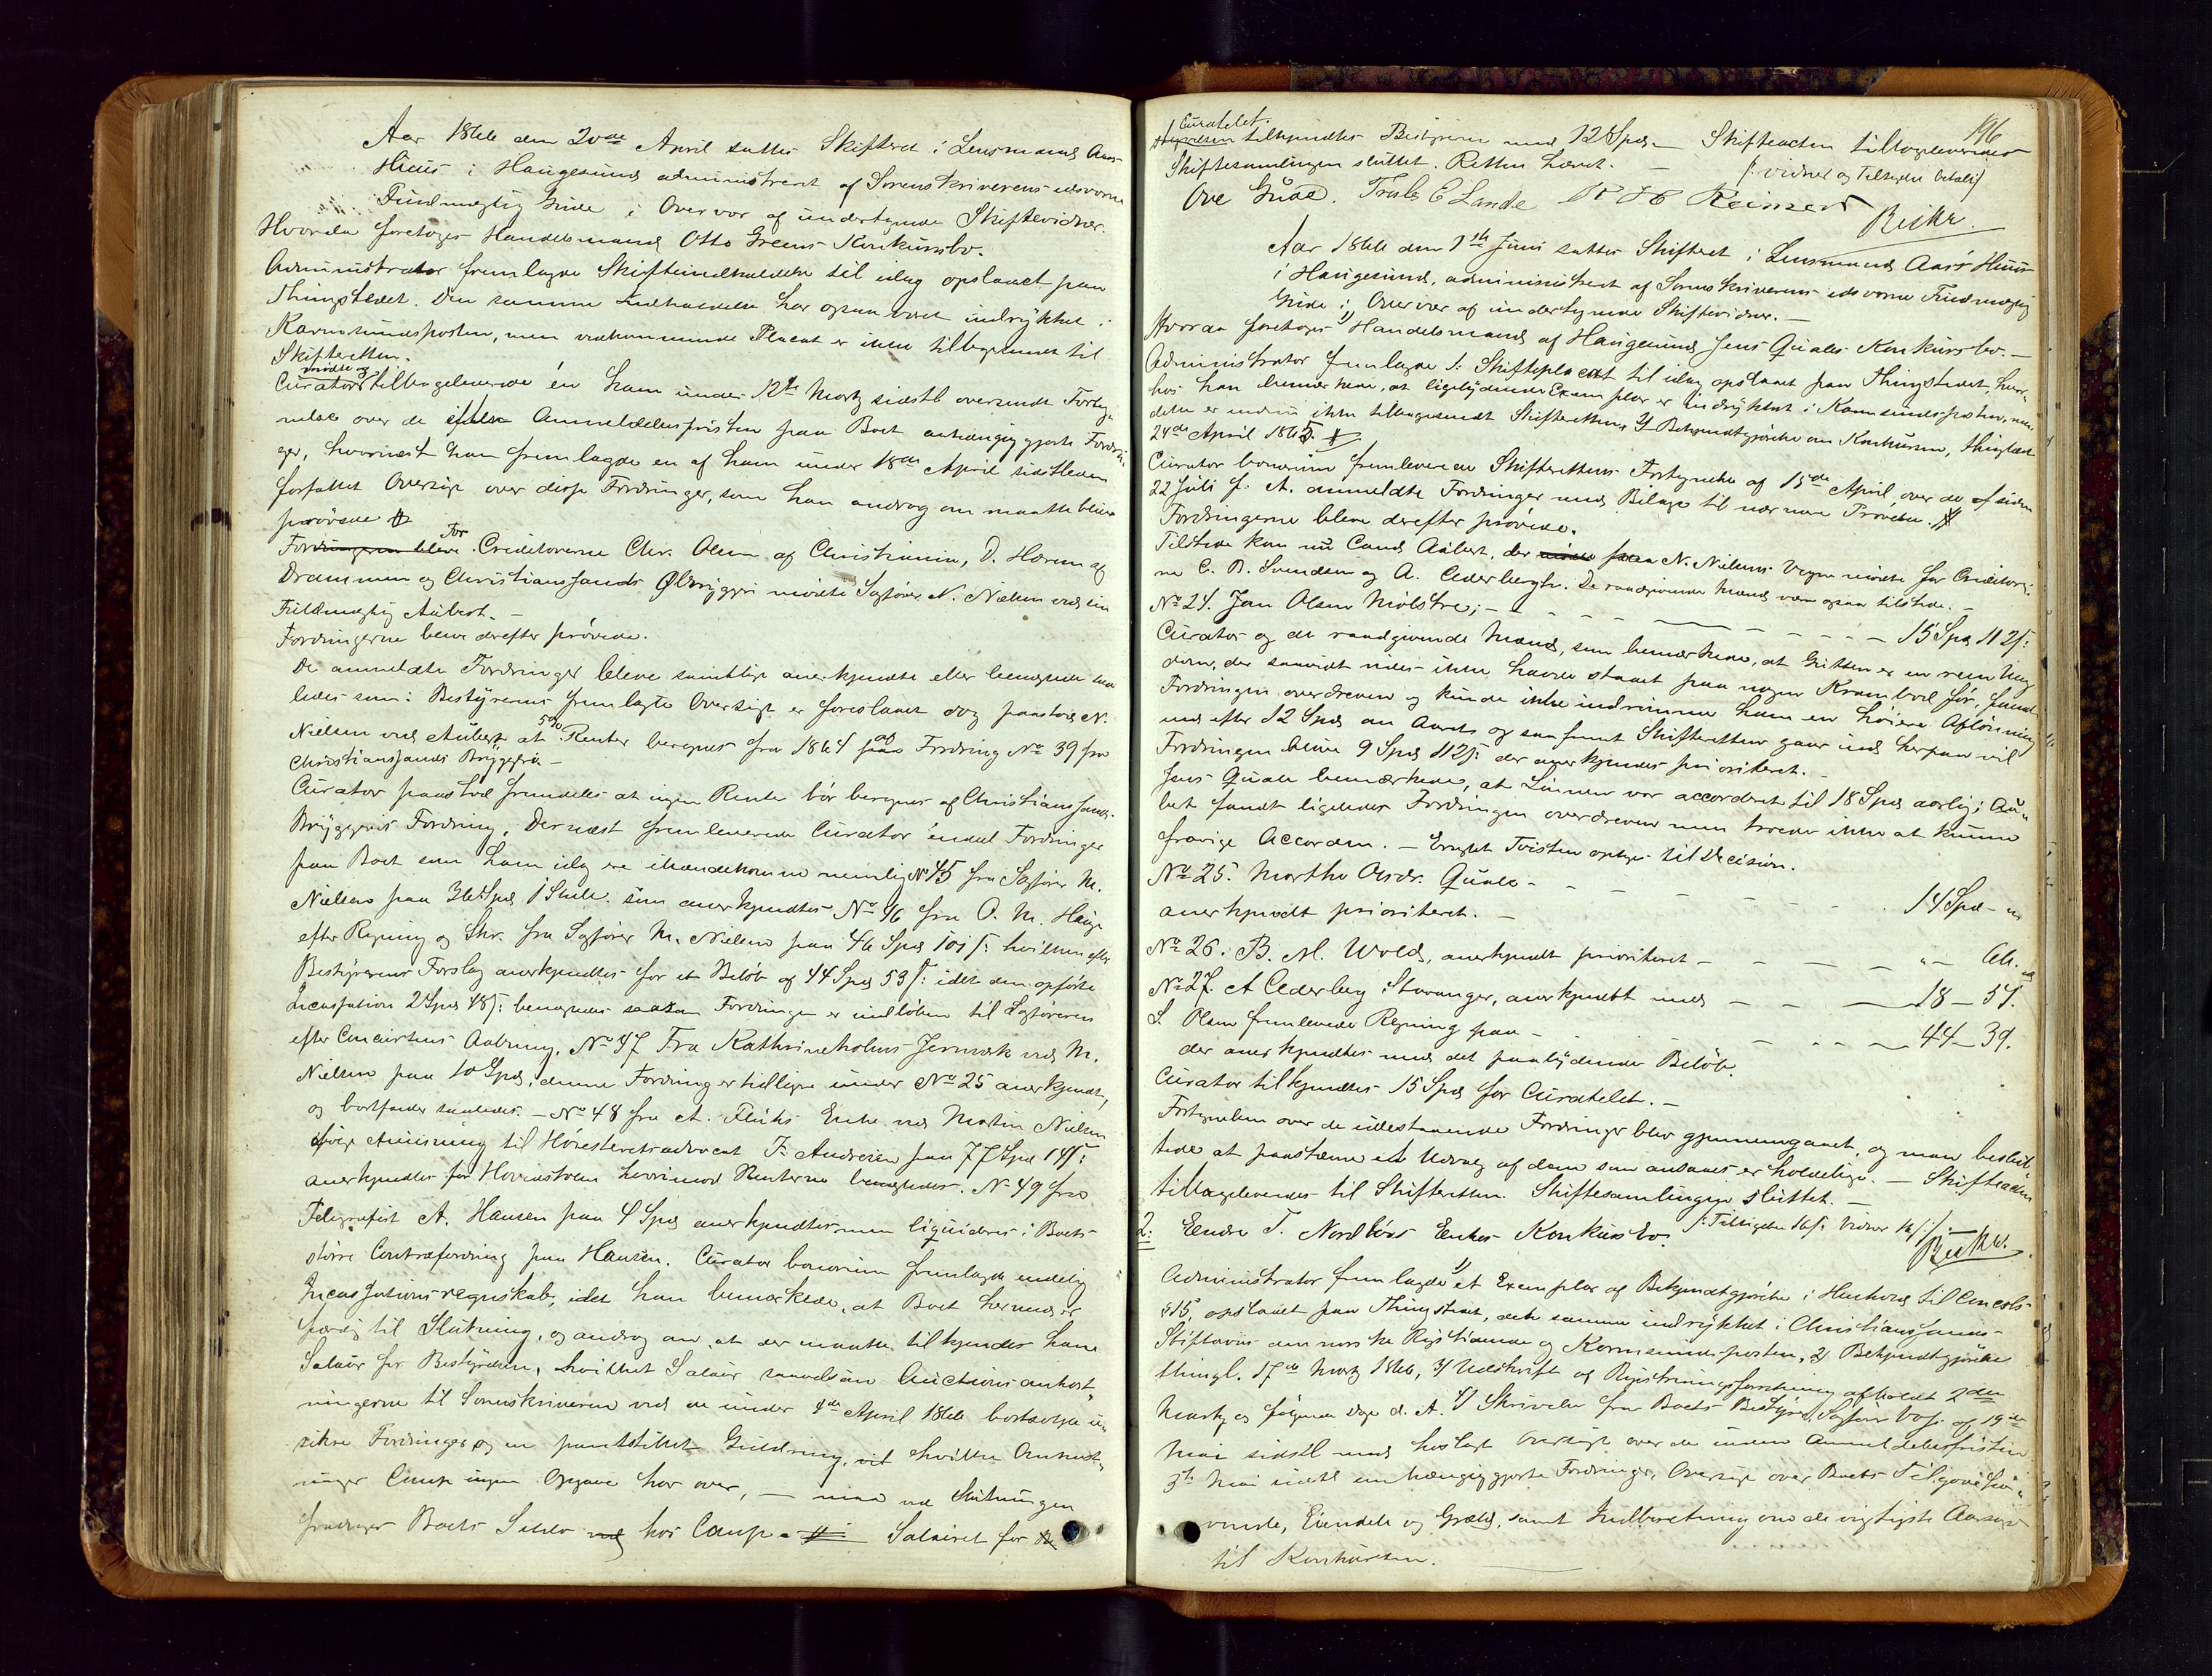 Aar 1866 den 20de April sattes Skifteret i Lensmand Aars
Huus i Haugesund administreret af Sorenskriverens edsvorne
Fuldmægtig Gude i Overvær af undertegnede Skiftevidner.
Hvorda foretoges Handelsmand Otto Greens Konkursbo.
Administrator fremlagde Skifteindkaldelse til idag opslaaet paa
Thingstedet. Den samme Indkaldelse har ogsaa været indrykket i
Karmsundsposten, men vedkommende Placat er ikke tilbagesendt til
Skifteretten.
mødte og
Curator tilbageleverede en ham under 12te Marts sidstl oversendt Forteg-
nelse over de efter Anmeldelsesfristen paa Boet anhængiggjorte Fordrin-
ger, hvornæst han fremlagde en af ham under 18de April sidstleden
forfattet Oversigt over disse Fordringer, som han androg om maatte blive
prøvede
For
Fordringerne bleve Creditorerne Chr. Olsen af Christiania, D. Hærem af
Drammen og Christianssands Ølbryggeri mødte Sagfører N. Nielsen ved sin
Fuldmægtig Aubert. -
Fordringerne bleve derefter prøvede.
De anmeldte Fordringer bleve samtlige anerkjendte eller benegtede saa-
ledes som i Bestyrerens fremlagte Oversigt er foreslaaet dog paastod N.
Nielsen ved Aubert at 5% Renter beregnes fra 1864 af Fordring No 39 fra
Christianssands Bryggeri -
Curator paastod fremdeles at ingen Rente bør beregnes af Christianssands
Bryggeris Fordring. Dernæst fremleverede Curator endeel Fordringer
paa Boet som ham idag ere ihændekomne nemlig No 45 fra Sagfører M.
Nielsen paa 36 Spd 1 Skill. som anerkjendtes No 46 fra O. M. Hauge
efter Regning og Skr. fra Sagfører M. Nielsen paa 46 Spd 101 s: hvilken efter
Bestyrerens Forslag anerkjendtes for et Beløb af 44 Spd 53 s: idet den opførte
Incassation 2 Spd 48 s: benegtedes saasom Fordringen er indløben til Sagføreren
efter Concursens Aabning. No 47 Fra Kathrineholms Jernværk ved M.
Nielsen paa 10 Spd, denne Fordring er tidligere under No 25 anerkjendt,
og bortfalder saaledes. - No 48 fra A. Enke ved Martin Nielsen
ifølge Anviisning til Høiesteretsadvocat F. Andresen paa 77 Spd 14 s:
anerkjendtes for Hovedstolen hvorimod Renterne benegtedes. No 49 fra
Telegrafist A. Hansen paa 4 Spd anerkjendtes men liquideres i Boets
større Contrafordring paa Hansen. Curator bonorum fremlagde endelig
Incassationsregnskab, idet han bemærkede, at Boet hermed er
færdig til Slutning, og androg om, at der maatte tilkjendes ham
Salair for Bestyrelsen, hvilket Salair saavelsom Auctionsomkost-
ningerne til Sorenskriveren ved de under 4de April 1866 bortsolgte u-
sikre Fordringer og en pantstillet Guldring, ved hvilke Omkost-
ninger Camp ingen Opgave har over, - maa ved Slutningen
fradrages Boets Saldo hos Camp. Salairet for
196
Curatelet.
tilkjendtes Bestyreren med 12 Spd. - Skifteacten tilbageleveredes
Skiftesamlingen sluttet. Retten hævet. - /: vidner og Tilsigelse betalt/
Ove Gude. Trols E Lande Reimers
Reikr.
Aar 1866 den 7de Juni sattes Skifteret i Lensmand Aars's Huus
i Haugesund, administreret af Sorenskriverens edsvorne Fuldmægtig
Gude i Overvær af undertegnede Skiftevidner. -
Hvorda foretoges 1) Handelsmand af Haugesund Jens Qvales Konkursbo. -
Administrator fremlagde 1: Skifteplacat til idag opslaaet paa Thingstedet, hvor-
hos han bemærkede, at ligelydende Exemplar er indrykket i Karmsundsposten, men
dette er endnu ikke tilbagesendt Skifteretten, 2) Bekjendtgjørelse om Konkursen, thinglæst
24de April 1865.
Curator bonorum fremleverede Skifterettens Fortegnelse af 15de April over de siden
22 Juli f. A. anmeldte Fordringer med Bilage til nærmere Prøvelse.
Fordringerne bleve derefter prøvede.
Tilstede kom nu Cand Aubert, der paa N. Nielsens Vegne mødte for Creditorer-
ne C. B. Svendsen og A. Cederbergh. De raadgivende Mænd vare ogsaa tilstede. -
No 24. Jan Olsen Mølstre; - - - - - - - 15 Spd 112 s:
Curator og de raadgivende Mænd, som bemærkede, at Gutten er en reen Ung-
dom, der saavidt vides ikke havde staaet paa nogen Krambod før, fandt
Fordringen overdreven og kunde ikke indrømme ham en høiere Aflønning
end efter 12 Spd om Aaret og saafremt Skifteretten gaar ind herpaa vil
Fordringen blive 9 Spd 112 s: der anerkjendes prioriteret. -
Jens Qvale bemærkede, at Lønnen var accorderet til 18 Spd aarlig; Au-
bert fandt ligeledes Fordringen overdreven men troede ikke at kunne
fravige Accorden. - Tvisten optages til Decision.
No 25. Marthe Qvale - - - - - - 14 Spd - "
anerkjendt prioriteret. -
No 26. B. M. Wold, anerkjendt prioriteret - - - - - " -
No 27. A Cederberg Stavanger, anerkjendt med - - - 18 - 57.
S. Olsen fremleverede Regning paa - - - - 44 - 39.
der anerkjendtes med det paalydende Beløb.
Curator tilkjendtes 15 Spd for Curatelet. -
Fortegnelsen over de udestaaende Fordringer blev gjennemgaaet, og man beslut-
tede at paastævne et Udvalg af dem som ansaaes er holdelige. - Skifteacten
tilbageleveredes til Skifteretten. Skiftesamlingen sluttet. -
/: Tilsigelse 16 s: Vidner /: -
2: Eendre T. Nordbøes Enkes Konkursbo.
Reikr.
Administrator fremlagde 1) et Exemplar af Bekjendtgjørelse i Henhold til Concursl.
§ 15, opslaaet paa Thingstedet, dette samme indrykket i Christianssands
Stiftsavis den norske Rigstidende og Karmsundsposten, 2) Bekjendtgjørelse
thingl. 17de Marts 1866, 3) Udskrift af Registreringsforretning afholdt 2den
Marts og følgende Dage d. A. 4) Skrivelse fra Boets Bestyrer, Sagfører Voss af 19de
Mai sidstl med hoslagt Oversigt over de inden Anmeldelsesfristen
3de Mai sidstl anhængiggjorte Fordringer, Oversigt over Boets Tilgodeha-
vende, Eiendele og Gjæld, samt Indberetning om de vigtigste Aarsager
til Konkursen.